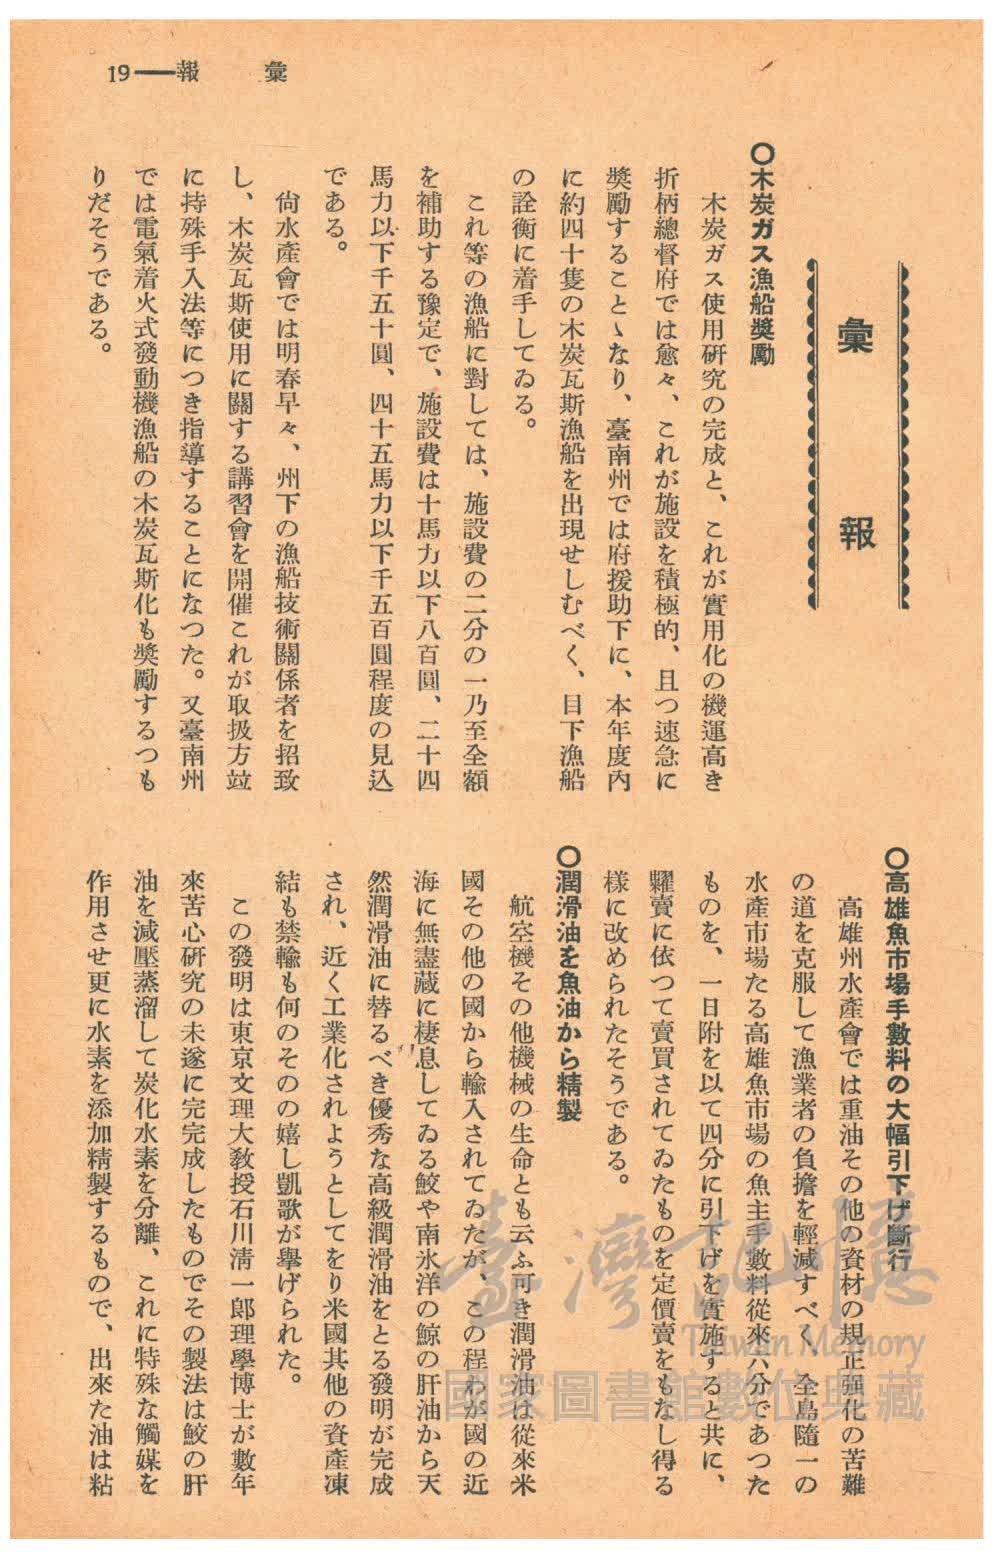 19━━報　　彙
彙　　報
〇木炭ガス漁船獎勵
木炭ガス使用研究の完成と、これが實用化の機運高き
折柄總督府では愈々、これが施設を積極的、且つ速急に
獎勵することゝなり、臺南州では府援助下に、本年度内
に約四十隻の木炭瓦斯漁船を出現せしむべく、目下漁船
の詮衡に着手してゐる。
これ等の漁船に對しては、施設費の二分の一乃至全額
を補助する豫定で、施設費は十馬力以下八百圓、二十四
馬力以下千五十圓、四十五馬力以下千五百圓程度の見込
である。
尙水產會では明春早々、州下の漁船技術關係者を招致
し、木炭瓦斯使用に關する講習會を開催これが取扱方竝
に持殊手入法等につき指導することになつた。又臺南州
では電氣着火式發動機漁船の木炭瓦斯化も獎勵するつも
りだそうである。
〇高雄魚市場手數料の大幅引下げ斷行
高雄州水產會では重油その他の資材の規正强化の苦難
の道を克服して漁業者の負擔を輕減すべく、全島隨一の
水產市場たる高雄魚市場の魚主手數料從來六分であつた
ものを、一日附を以て四分に引下げを實施すると共に、
糶賣に依つて賣買されてゐたものを定價賣をもなし得る
樣に改められたそうである。
〇潤滑油を魚油から精製
航空機その他機械の生命とも云ふ可き潤滑油は從來米
國その他の國から輸入されてゐたが、この程わが國の近
海に無盡藏に棲息してゐる鮫や南氷洋の鯨の肝油から天
然潤滑油に替るべき優秀な高級潤滑油をとる發明が完成
され、近く工業化されようとしてをり米國其他の資產凍
結も禁輸も何のそのの嬉し凱歌が擧げられた。
この發明は東京文理大敎授石川淸一郞理學博士が數年
來苦心研究の末遂に完完成したものでその製法は鮫の肝
油を減壓蒸溜して炭化水素を分離、これに特殊な觸媒を
作用させ更に水素を添加精製するもので、出來た油は粘
臺灣記憶
Taiwan Memory
國家圖書館數位典藏